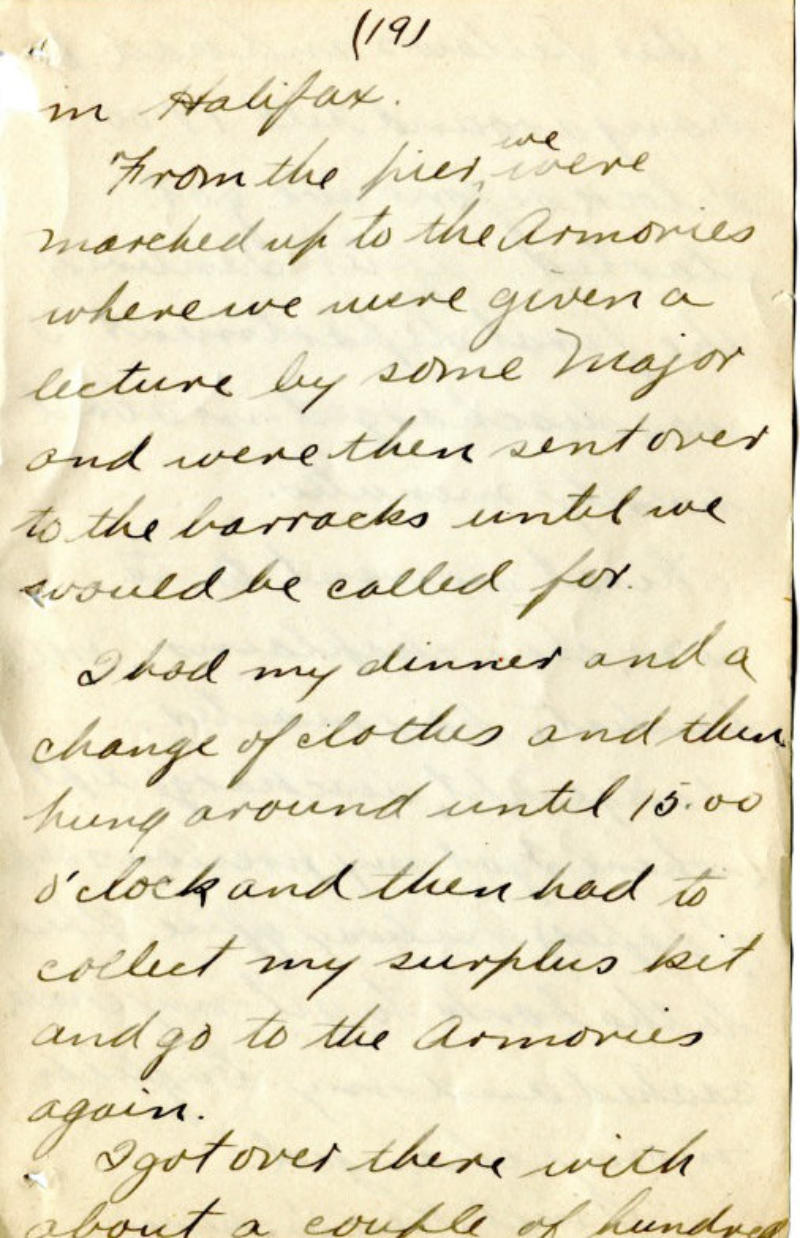 (19)
in Halifax.
From the pier, we were
marched up to the Armories
where we were given a
lecture by some Major
and were then sent over
to the barracks until we
would be called for.
I had my dinner and a
change of clothes and then
hung around until 15.00
o'clock and then had to
collect my surplus kit
and go to the Armories
again.
I got over there with
about a couple of hundred